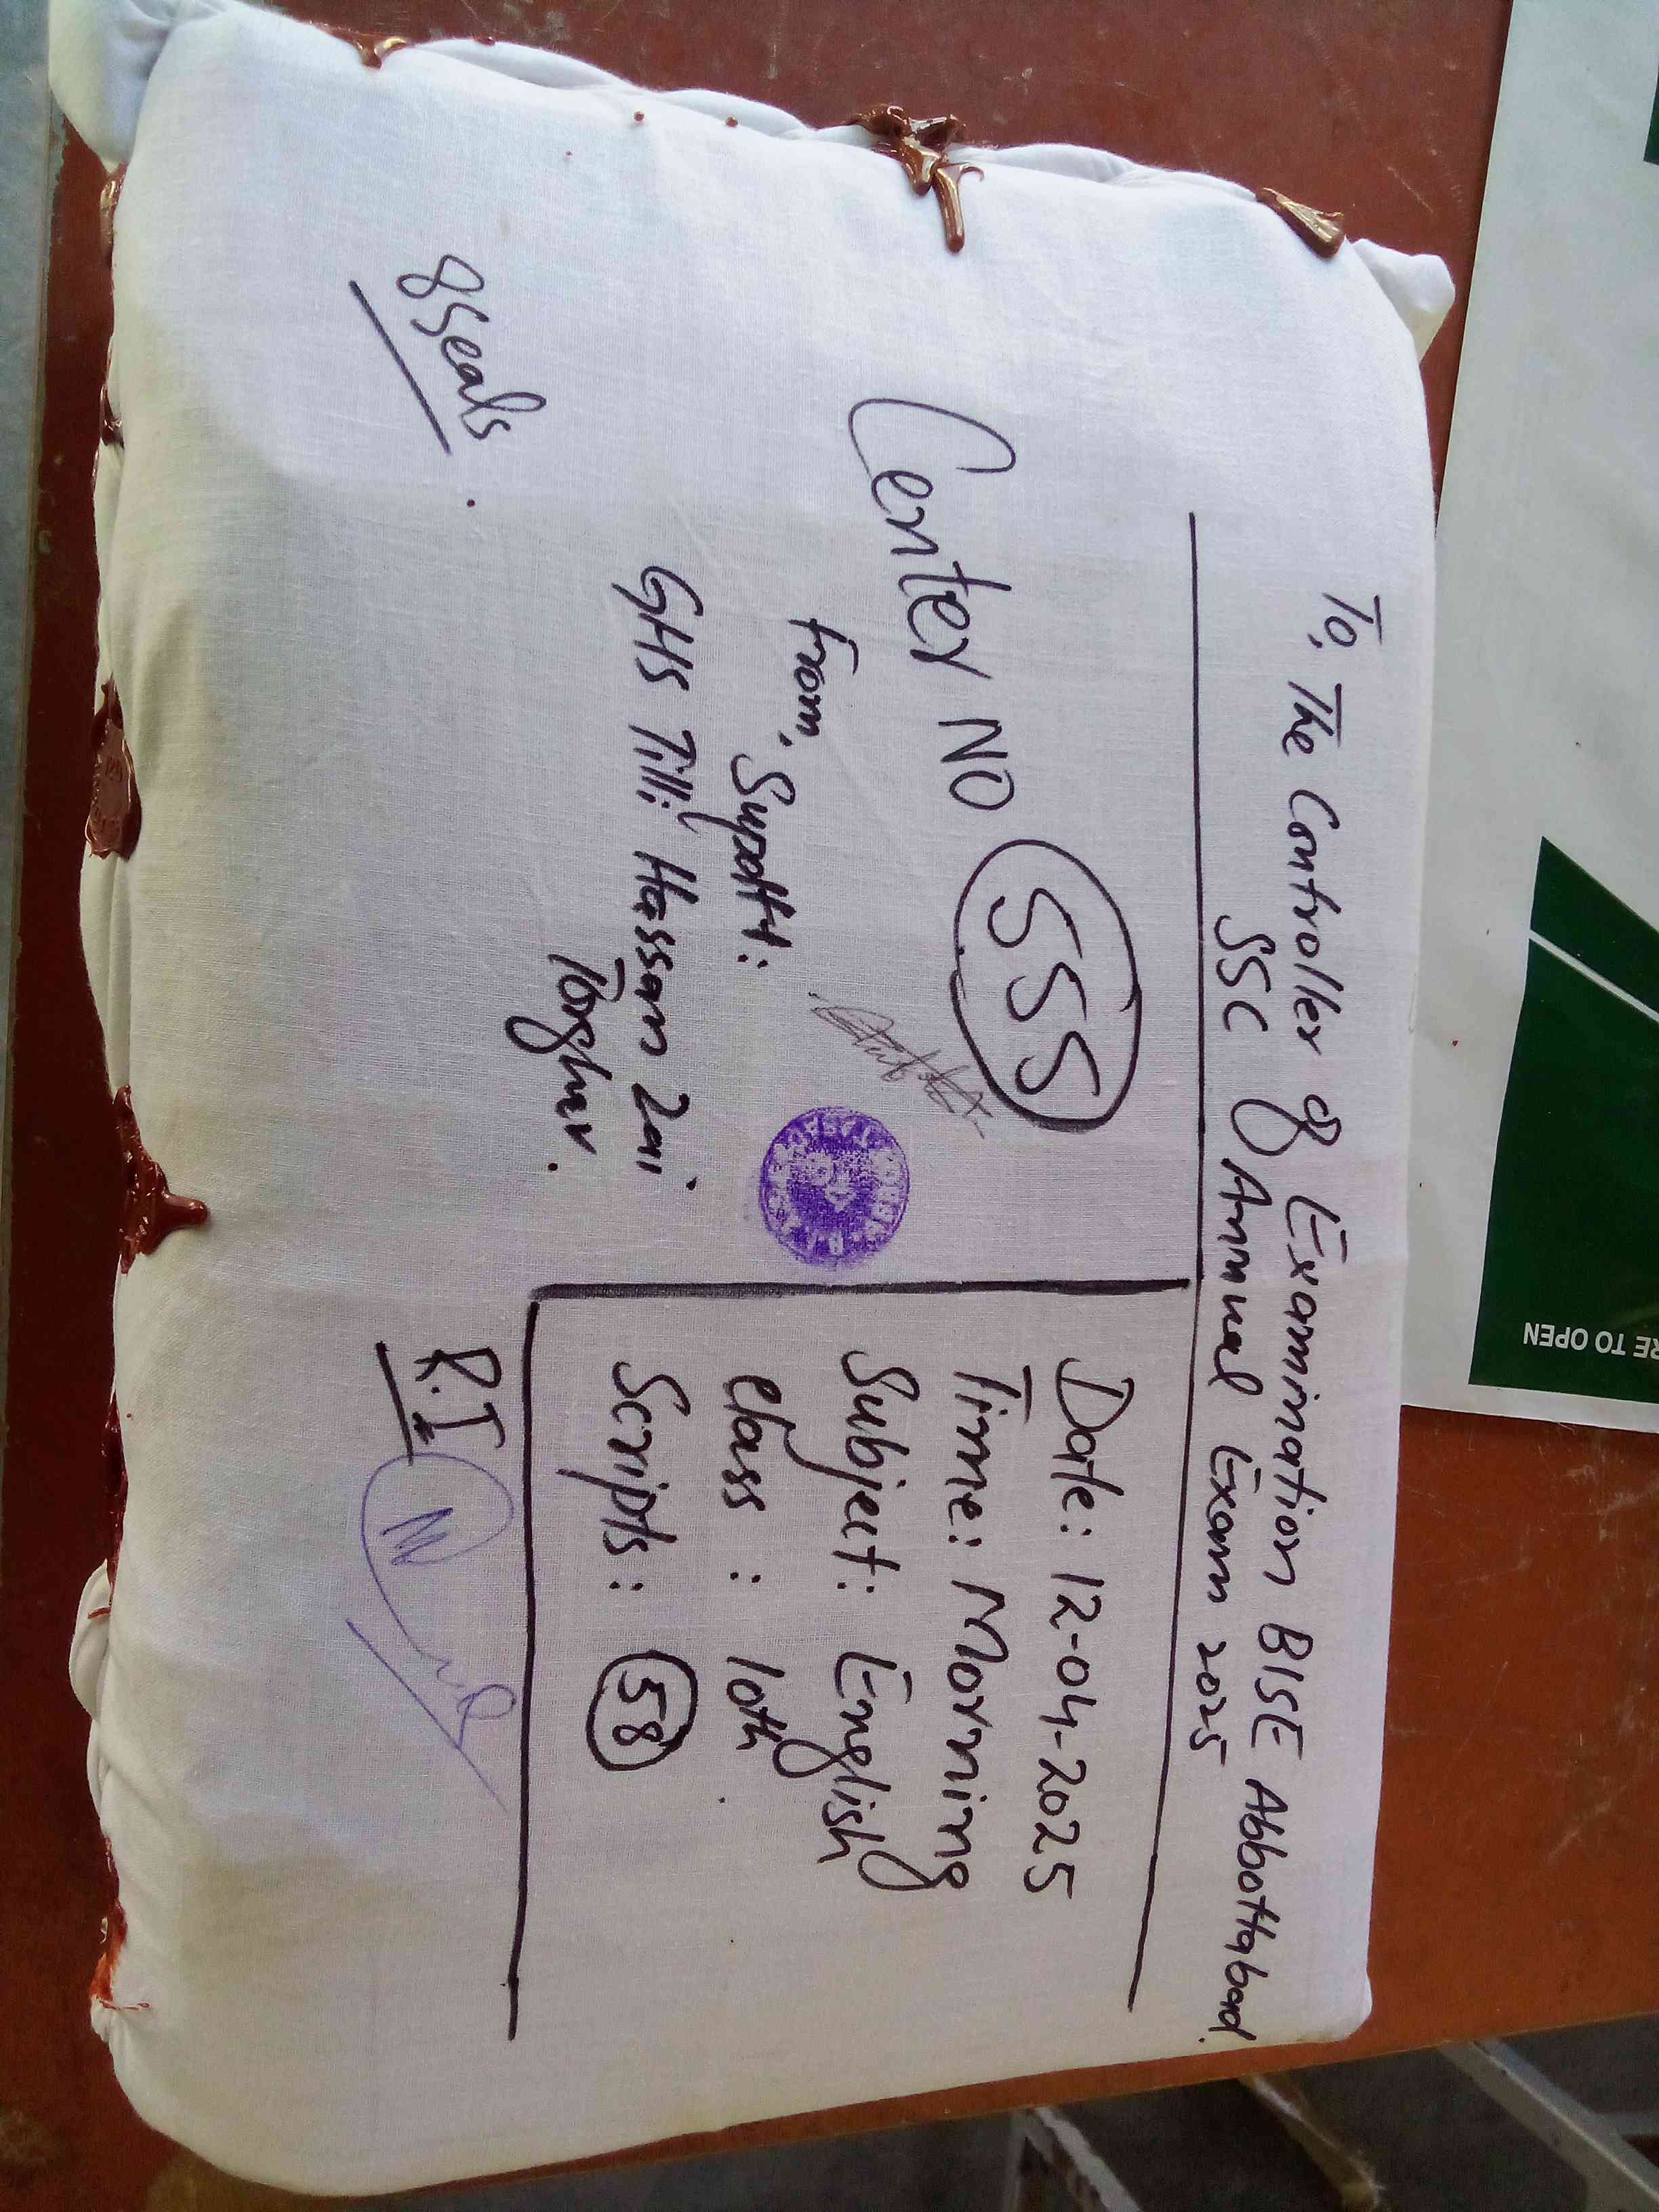 To, The Controller of Examination BISE Abbottabad.
SSC Annual Exam 2025
Center NO 555
From, Supdtt:
GHS Tilli Hassan Zai
Torghar.
8 Seals.
Date: 12-04-2025
Time: Morning
Subject: English
Class : 10th
Scripts: 58
R.I
RE TO OPEN